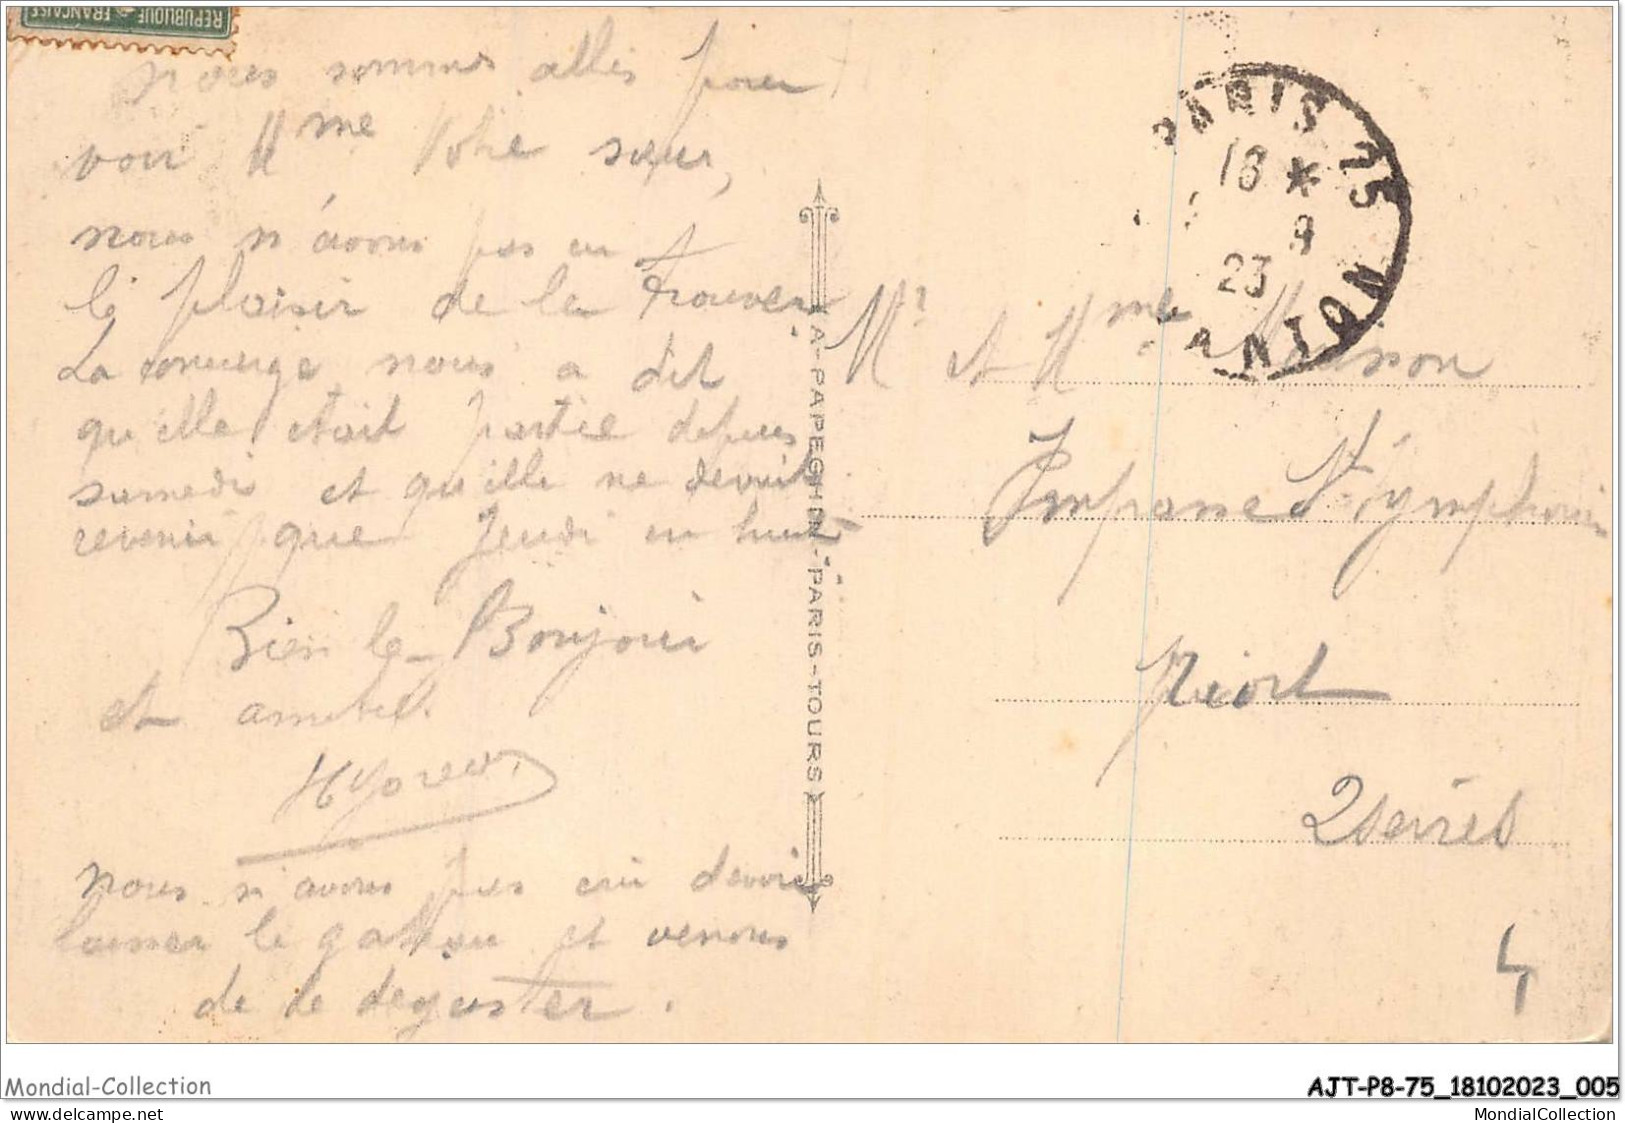 REPUBLIQUE FRANÇAISE
nous sommes allés pour
voir Mme Votre sœur,
nous n'avons pas eu
le plaisir de la trouver
La concierge nous a dit
qu'elle était partie depuis
samedi et qu'elle ne devait
revenir que Jeudi en huit
Bien le Bonjour
et amitiés.
nous n'avons pas cru devoir
laisser le gateau et venons
de le deguster.
A-PAPEGHIN-PARIS-TOURS
PARIS 75
18 *
9
23
Mr et Mme Maison
Impasse St Symphorien
Niort
2 Sevres
4
Mondial-Collection
AJT-P8-75_18102023_005
delcampe.net
MondialCollection